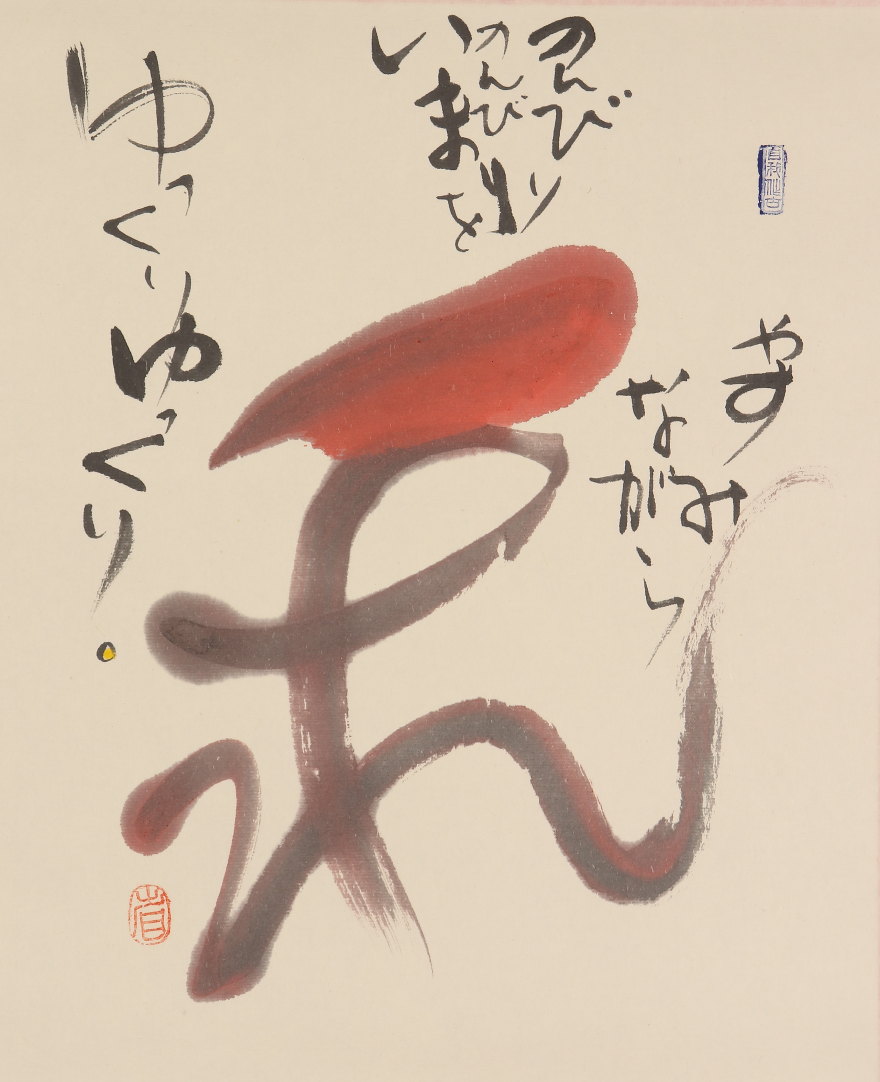 やすみ
ながら
のんびり
のんびり
いまを
ゆっくりゆっくり